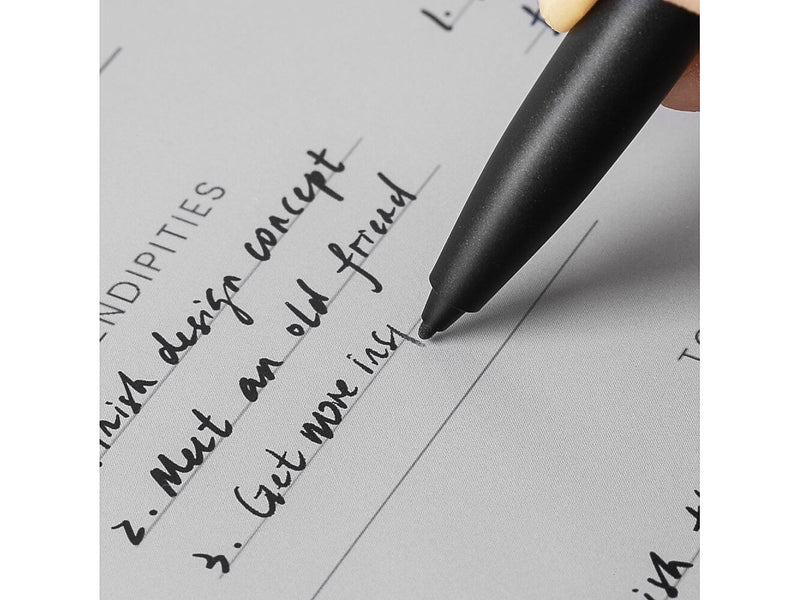 1.
NDIPITIES
nish design concept
2. Meet an old friend
3. Get more insp
TO
ish